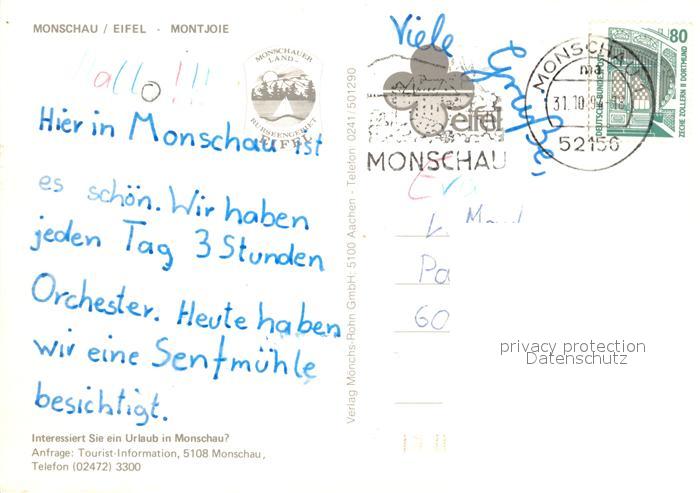 MONSCHAU / EIFEL - MONTJOIE
Hallo!!!
Hier in Monschau ist
es schön. Wir haben
jeden Tag 3 Stunden
Orchester. Heute haben
wir eine Senfmühle
besichtigt.
Interessiert Sie ein Urlaub in Monschau?
Anfrage: Tourist-Information, 5108 Monschau,
Telefon (02472) 3300
MONSCHAUER
LAND-
RURSEENGEBIET
EIFEL
Verlag Mönchs-Rohn GmbH: 5100 Aachen - Telefon 0241/501290
Viele
Grüße,
eifel
MONSCHAU
MONSCHAU
ma
31.10.
52156
80
DEUTSCHE BUNDESPOST
ZECHE ZOLLERN II DORTMUND
Eva
Pa
60
privacy protection
Datenschutz